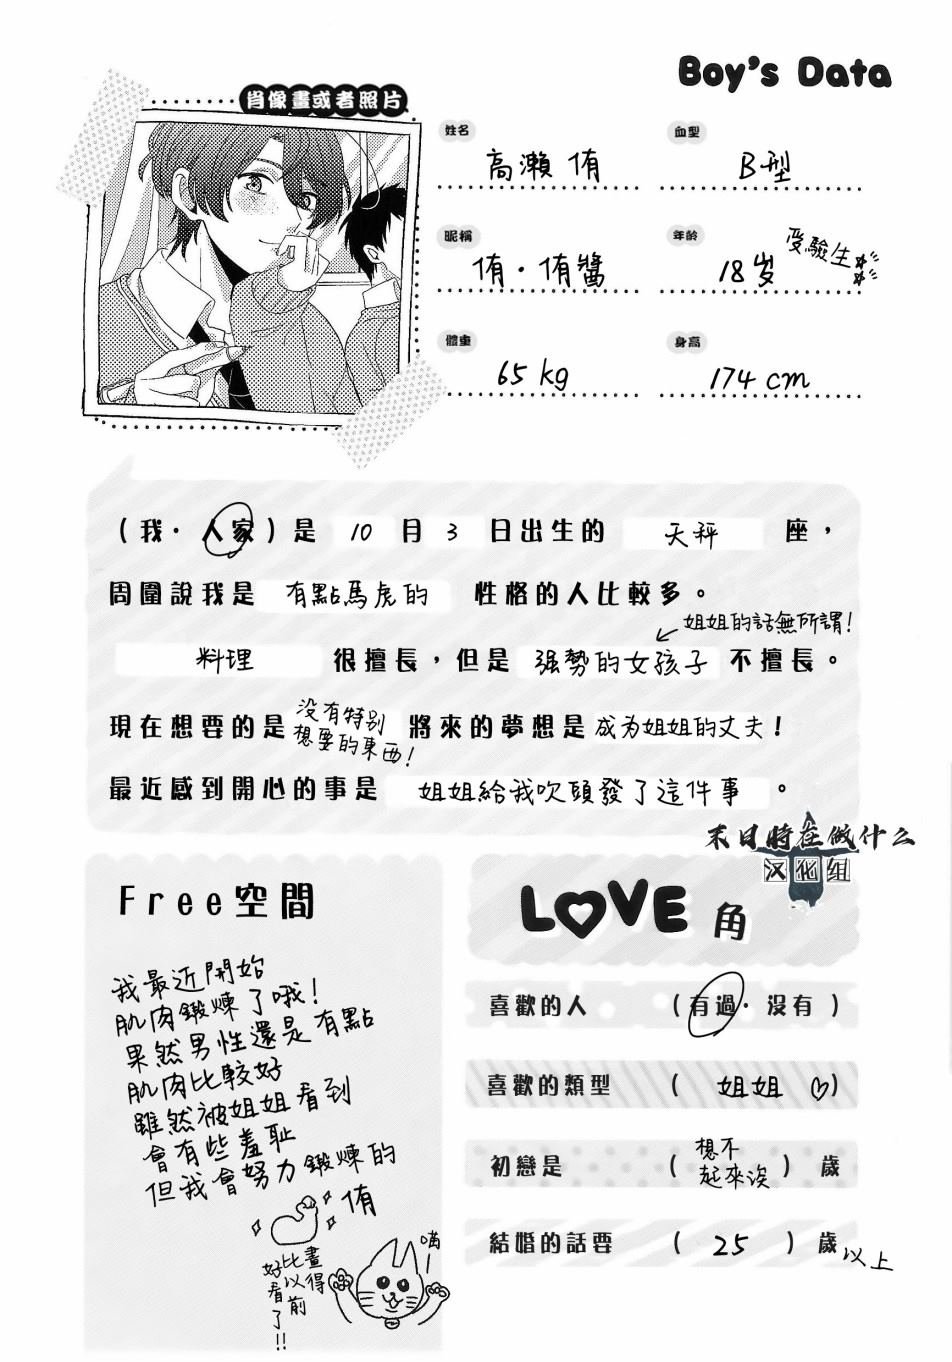 Boy's Data
肖像畫或者照片
姓名
高瀨 侑
血型
B型
昵稱
侑・侑醬
年齡
18岁
受驗生
體重
65 kg
身高
174 cm
(我・人家)是 10 月 3 日出生的 天秤 座,
周圍說我是 有點馬虎的 性格的人比較多。
姐姐的話無所謂!
料理 很擅長,但是 强勢的女孩子 不擅長。
現在想要的是 没有特别想要的東西! 將來的夢想是 成为姐姐的丈夫!
最近感到開心的事是 姐姐給我吹頭發了這件事 。
末日時在做什么
汉化组
Free空間
我最近開始
肌肉鍛煉了哦!
果然男性還是有點
肌肉比較好
雖然被姐姐看到
會有些羞耻
但我會努力鍛煉的
侑
喵
畫得
比以前
好看了!!
LOVE角
喜歡的人 (有過・没有)
喜歡的類型 ( 姐姐 ♡)
初戀是 ( 想不起來誒 ) 歲
結婚的話要 ( 25 ) 歲以上